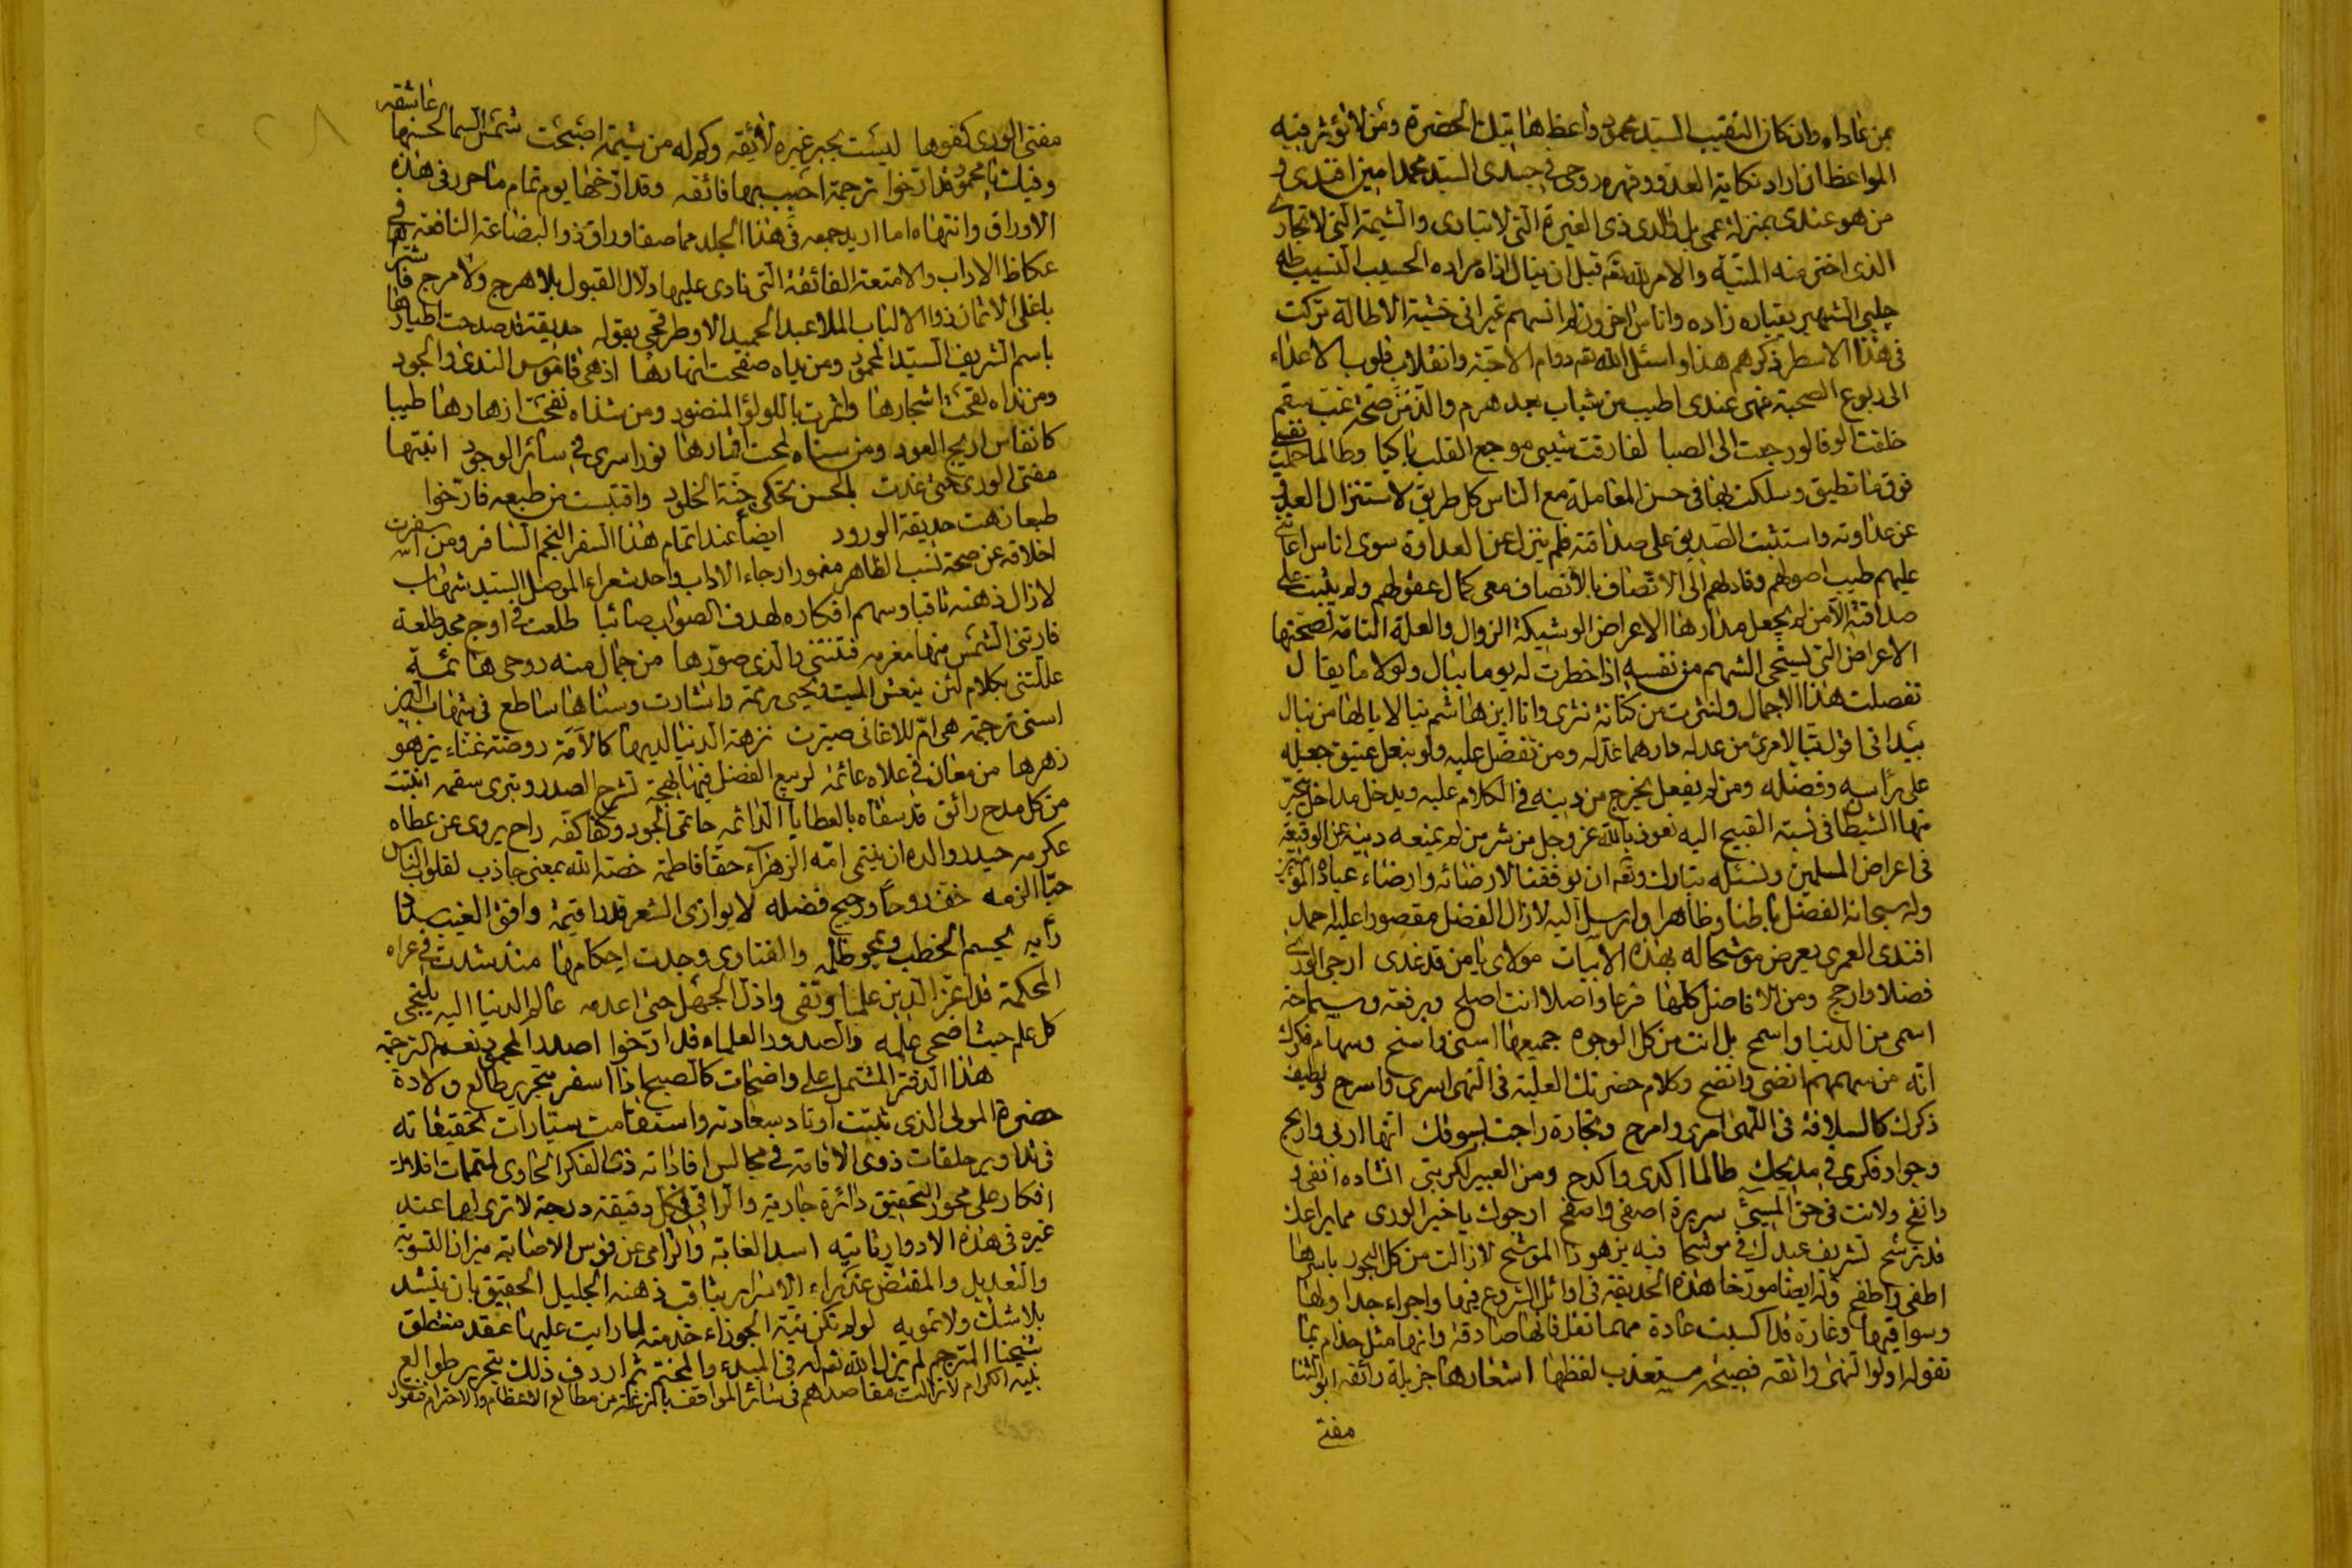 بمن عاداه وان كان النقيب السيد محمود واعظ هاتيك الحضرة ومن لا تؤثر فيه
المواعظ ان اراد نكاية العدو وقهره روحى في جسدى السيد محمد امين افندى
من هو عندى بمنزلة عمى بل والدى ذى الغيرة التى لا تبارى والشيمة التى لا تجارى
الذى اختر منه المنية والامر لله تعه قبل ان ينال اذاه مراده الحسيب النسيب طه
چلبى الشهير بقياره زاده واناس اخرون لم انسهم غير انى خشية الاطالة تركت
فى هذا الاسطر ذكرهم هذا واسئل الله تعه دوام الاحبة وانقلاب قلوب الاعداء
الى ربوع الصحبة فهى عندى اطيب من شباب بعد هرم والذ من صحة غب سقم
خلقت الوفا لو رجعت الى الصبا لفارقت شيبى موجع القلب باكيا وطالما حملت نفسى
فوق ما تطيق وسلكت بها فى حسن المعاملة مع الناس كل طريق لاستنزال العدو
عن عداوته واستثبت الصديق على صداقته فلم ينزل عن العداوة سوى اناس اعانى
عليهم طيب اصولهم وقادهم الى الاتصاف بالانصاف معى كمال عقولهم ولم يثبت على
صداقته الا من لم يجعل مدارها الاعراض الوشيكة الزوال والعلة التامة لصحتها
الاعراض التى يستحى الشهم من نفسه اذا خطرت له يوما ببال ولولا ما يقال
لفصلت هذا الاجمال ولنثرت من كنانة نثرى وانا ابن هاشم نبالا يا لها من نبال
بيد انى اقول تبا لامرئ من عدله دارهما عذله ومن تفضل عليه ولو بنعل عتيق جعله
على رأسه وفضله ومن لم يفعل يخرج من دينه فى الكلام عليه ويدخل مداخل يتحير
منها الشيطان فى نسبة القبيح اليه نعوذ بالله عز وجل من شر من لم يمنعه دينه عن الوقيعة
فى اعراض المسلمين ونسئله تبارك وتعه ان يوفقنا لارضائه وارضاء عباده المؤمنين
وله سبحانه الفضل باطنا وظاهرا وارسل اليه لازال الفضل مقصورا عليه احمد
افندى العمرى يعرض موشحا له بهذه الابيات مولاى يا من قد غدى ارجى الورى
فضلا وارجح ومن الافاضل كلها فرعا واصلا انت اصلح وبرفعة وسماحة
اسمى من الدنيا واسمح بل انت من كل الوجوه جميعها اسنى واسنح وسهام فكرك
انه من سهمهم انضى وانضح وكلام حضرتك العلية فى النهى اسرى واسرح ولطيف
ذكرك كالسلافة فى اللهى امرى وامرح وتجارة راجت بسوقك انها اربى واربح
وجواد فكرى فى مديحك طالما اكدى واكدح ومن العبير لكربتى انشاده انفى
وانفح ولانت فى حق المسئ سريرة اصفى واصفح ارجوك يا خير الورى مما يراعك
قد ترشح تشريف عبدك فى موشحا فيه يزهو ذا الموشح لازالت من كل البحور باسرها
اطفى واطفح وله ايضا مورخا هذه الحديقة فى اوائل الشروع فيها واجراء جداولها
وسواقيها وغارة قد اكسبت عادة مهما تقل فانها صادقة وانها مثل حذام بما
تقوله اولو النهى واثقه فصيحة مستعذب لفظها اشعارها جزيلة رائقه ابو الثنا
مفتى
مفتى الورى كفوها ليست بحبر غيره لائقه وكم له من شيمة اصبحت شمس السما لحسنها عاشقه
وفيك يا محمود قد ارخوا ترجمة احبب بها فائقه وقد ارخها يوم تمام ما حرر فى هذه
الاوراق وانتهاء ما اريد جمعه فى هذا الجلد مما صفا وراق ذو البضاعة النافقة فى
عكاظ الاداب والامتعة الفائقة التى نادى عليها دلال القبول بلا هرج ولا مرج فاشترها
باغلى الاثمان ذوو الالباب الملا عبد الحميد الاوطرقجى بقوله حديقة قد صدحت اطيارها
باسم الشريف السيد المحمود ومن نداه صفحت انهارها اذ هى قاموس الندى والجود
ومن نداه نقحت اشجارها واثمرت باللولؤ المنضود ومن شذاه نفحت ازهارها طيبا
كانفاس اريج العود ومن سناه لمحت اقمارها نورا سرى فى سائر الوجود انبتها
مفتى الورى حتى غدت بالحسن تحكى جنة الخلود واقتبست من طبعه فارخوا
طبعا زهت حديقة الورود ايضا عند اتمام هذا السفر النجم السافر ومن اسفرت
اخلاقه عن صحة نسب الطاهر مغمور ارجاء الاداب واحد شعراء الموصل السيد شهاب
لازال ذهنه ثاقبا وسهم افكاره لهدف الصواب صائبا طلعت فى اوج مجد طلعة
فارتنى الشمس منها مغرمه فتنتنى والذى صورها من جمال منه روحى هائمة
عللتنى بكلام لئن ينعش الميت ويحيى رممه وانشارت وسناها ساطع فى شهاب الدين
اسنى ترجمة هى ام للاغانى صيرت نزهة الدنيا اليها كالامة روضة غناء يزهو
زهرها من معان فى علاه عائمة لربيع الفضل فيها بهجة تشرح الصدر وتبرى سقمه انبتت
من كل مدح رائق قد سقاه بالعطايا الدائمه حاتمى الجود وكفا كفه راح يروى عن عطاه
عكرمه حيدر والده ان ينتمى امه الزهراء حقا فاطمة خصه الله بمعنى جاذب لقلوب الناس
حبا الزمه خف روحا ورجيح فضله لا يوازى الشعر قدرا قيمة وافق الغيب سدادا
رأيه لجسم الخطب ويمحو ظلمه والفتاوى وجدت احكامها منذ شدت فى عراه
المحكمة قد اعز الدين علما وتقى واذل الجهل حتى اعدمه عالم الدنيا اليه يلتجى
كل علم حيث اضحى علمه والصدور العلماء قد ارخوا اصدر المحمود نعم الترجمه
هذا الدفتر المشتمل على واضحات كالصبح اذا اسفر بتحرير طالع ولادة
حضرة المولى الذى ثبتت اوتاد سعادته واستقامت سيارات تحقيقاته
فى تداوير حلقات ذوى الافاقة فى مجالس افاداته ذى الفكر الحاوى لمتممات افلاك
افكار على محور التحقيق دائرة جارية والراقى فى كل دقيقة درجة لا ترى لها عند
غيره فى هذه الادوار ثانيه اسد الغابة والرامى عن قوس الاصابة ميزان التسوية
والتعديل والمقتض عذراء الاسرار بثاقب ذهنه الجليل الحقيق بان ينشد
بلا شك ولا تمويه لو لم تكن نية الجوزاء خدمته لما رايت عليها عقد منتطق
شيخنا المترجم لم يزل الله تعه له فى المبدء والمختم ثم اردف ذلك بتحرير طوالع
بنيه الكرام لازالت مقاصدهم فى سائر المواقف بازغة من مطالع الاعظام والاحترام فنقول